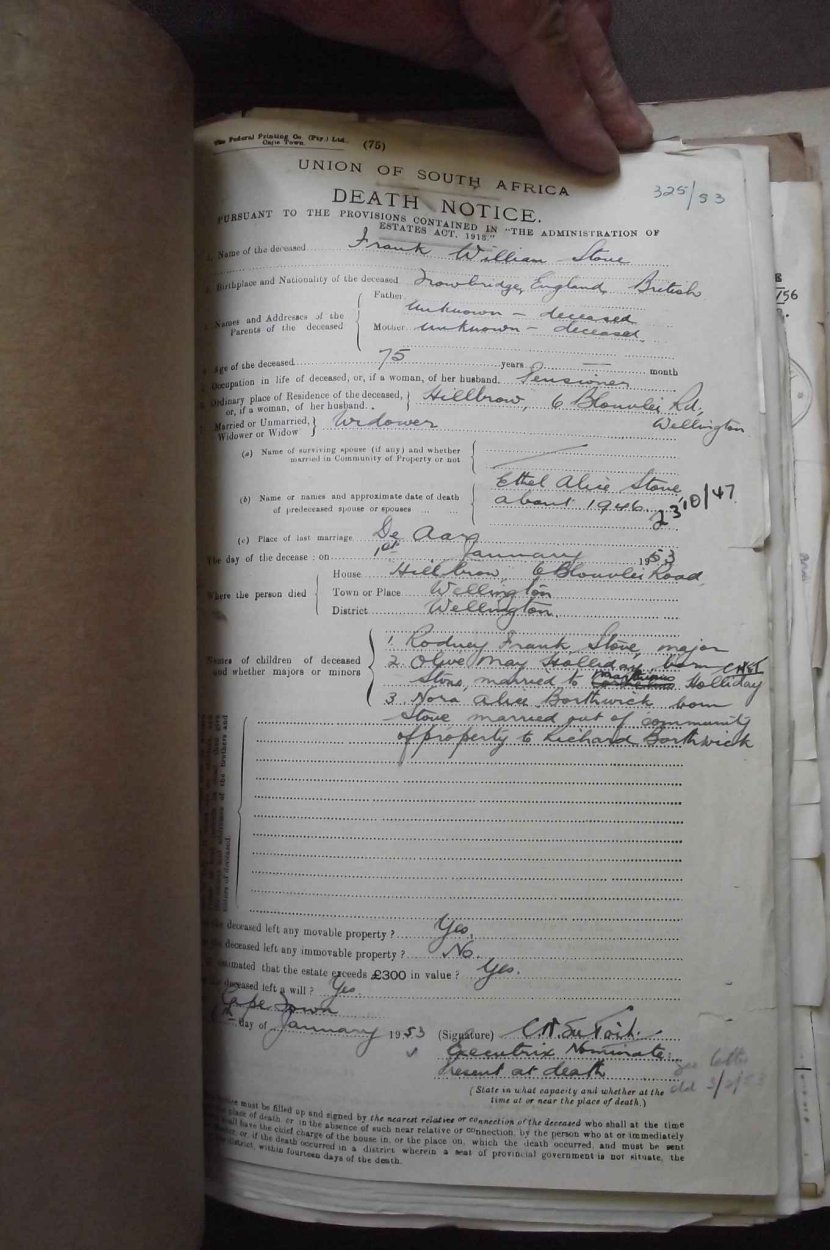 The Federal Printing Co. (Pty.) Ltd.
Cape Town. (75)
UNION OF SOUTH AFRICA
325/53
DEATH NOTICE.
PURSUANT TO THE PROVISIONS CONTAINED IN "THE ADMINISTRATION OF
ESTATES ACT, 1913."
Name of the deceased Frank William Stone
Birthplace and Nationality of the deceased Trowbridge, England, British
Names and Addresses of the Parents of the deceased
Father Unknown - deceased
Mother unknown - deceased
Age of the deceased 75 years — month
Occupation in life of deceased, or, if a woman, of her husband. Pensioner
Ordinary place of Residence of the deceased, or, if a woman, of her husband. Hillbrow, 6 Blouvlei Rd,
Wellington
Married or Unmarried, Widower or Widow Widower
(a) Name of surviving spouse (if any) and whether married in Community of Property or not
(b) Name or names and approximate date of death of predeceased spouse or spouses
Ethel Alice Stone
about 1946. 23/10/47
(c) Place of last marriage De Aar
The day of the decease : on 1st January 1953
Where the person died
House Hillbrow, 6 Blouvlei Road
Town or Place Wellington
District Wellington
Names of children of deceased and whether majors or minors
1. Rodney Frank Stone, major
2. Olive May Holliday, born
Stone, married to Holliday
3. Nora Alice Borthwick born
Stone married out of community
of property to Richard Borthwick
brothers and
sisters of deceased.
deceased left any movable property ? Yes.
deceased left any immovable property ? No.
estimated that the estate exceeds £300 in value ? Yes.
deceased left a will ? Yes.
Cape Town
day of January 1953 (Signature) C. H. du Toit.
Executrix Nominate:
Present at death
see letter
dd 3/2/53
(State in what capacity and whether at the
time at or near the place of death.)
must be filled up and signed by the nearest relative or connection of the deceased who shall at the time
place of death or in the absence of such near relative or connection, by the person who at or immediately
shall have the chief charge of the house in, or the place on, which the death occurred, and must be sent
or if the death occurred in a district wherein a seat of provincial government is not situate, the
district, within fourteen days of the death.